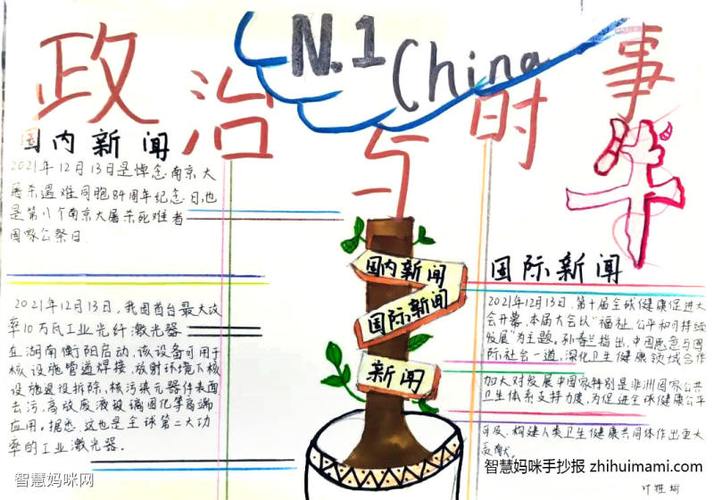 N.1 China
政治与时事
国内新闻
2021年12月13日是悼念南京大
屠杀遇难同胞84周年纪念日,也
是第八个南京大屠杀死难者
国家公祭日
2021年12月13日,我国首台最大功
率10万瓦工业光纤激光器
在湖南衡阳启动,该设备可用于
核设施管道焊接、放射环境下核
设施退役拆除、核污染元器件表面
去污、高放废液玻璃固化等高端
应用。据悉,这也是全球第二大功
率的工业激光器.
国内新闻
国际新闻
新闻
华
国际新闻
2021年12月13日,第十届全球健康促进大
会开幕,本届大会以"福祉、公平和可持续
发展"为主题。孙春兰指出,中国愿意与国
际社会一道,深化卫生健康领域合作
加大对发展中国家特别是非洲国家公共
卫生体系支持力度,为促进全球健康公平
可及、构建人类卫生健康共同体作出更大
贡献。
智慧妈咪网
智慧妈咪手抄报 zhihuimami.com